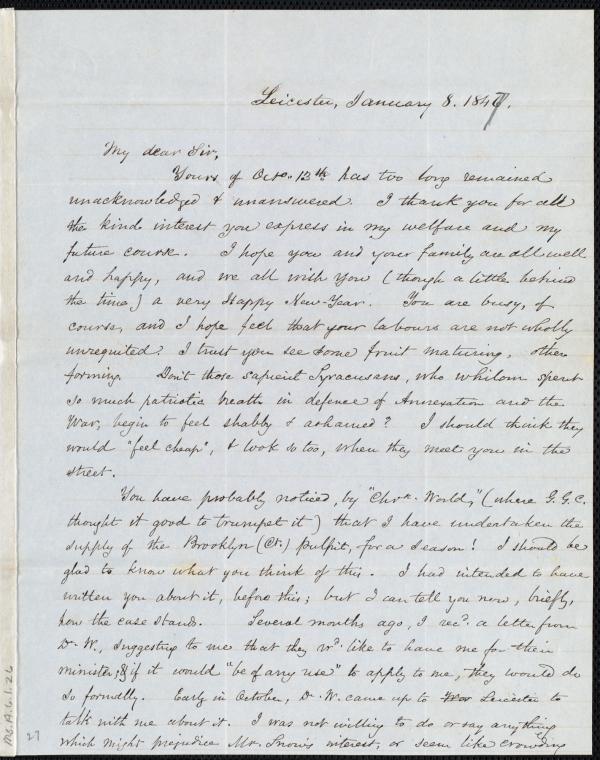 Leicester, January 8. 1847.
My dear Sir,
Yours of Octo. 13th has too long remained
unacknowledged & unanswered. I thank you for all
the kind interest you express in my welfare and my
future course. I hope you and your family are all well
and happy, and we all wish you (though a little behind
the time) a very Happy New-Year. You are busy, of
course, and I hope feel that your labours are not wholly
unrequited. I trust you see some fruit maturing, other
forming. Don't those sapient Syracusans, who whilom spent
so much patriotic breath in defence of Annexation and the
War, begin to feel shabby & ashamed? I should think they
would "feel cheap", & look so too, when they meet you in the
street.
You have probably noticed, by "Chrn. World," (where G. G. C.
thought it good to trumpet it) that I have undertaken the
supply of the Brooklyn (Ct.) pulpit, for a season! I should be
glad to know what you think of this. I had intended to have
written you about it, before this; but I can tell you now, briefly,
how the case stands. Several months ago, I recd. a letter from
Dr. W., suggesting to me that they wd. like to have me for their
minister, & if it would "be of any use" to apply to me, they would do
so formally. Early in October, Dr. W. came up to Leicester to
talk with me about it. I was not willing to do or say anything
which might prejudice Mr. Snow's interest, or seem like crowding
Ms.A.6.1.26
27